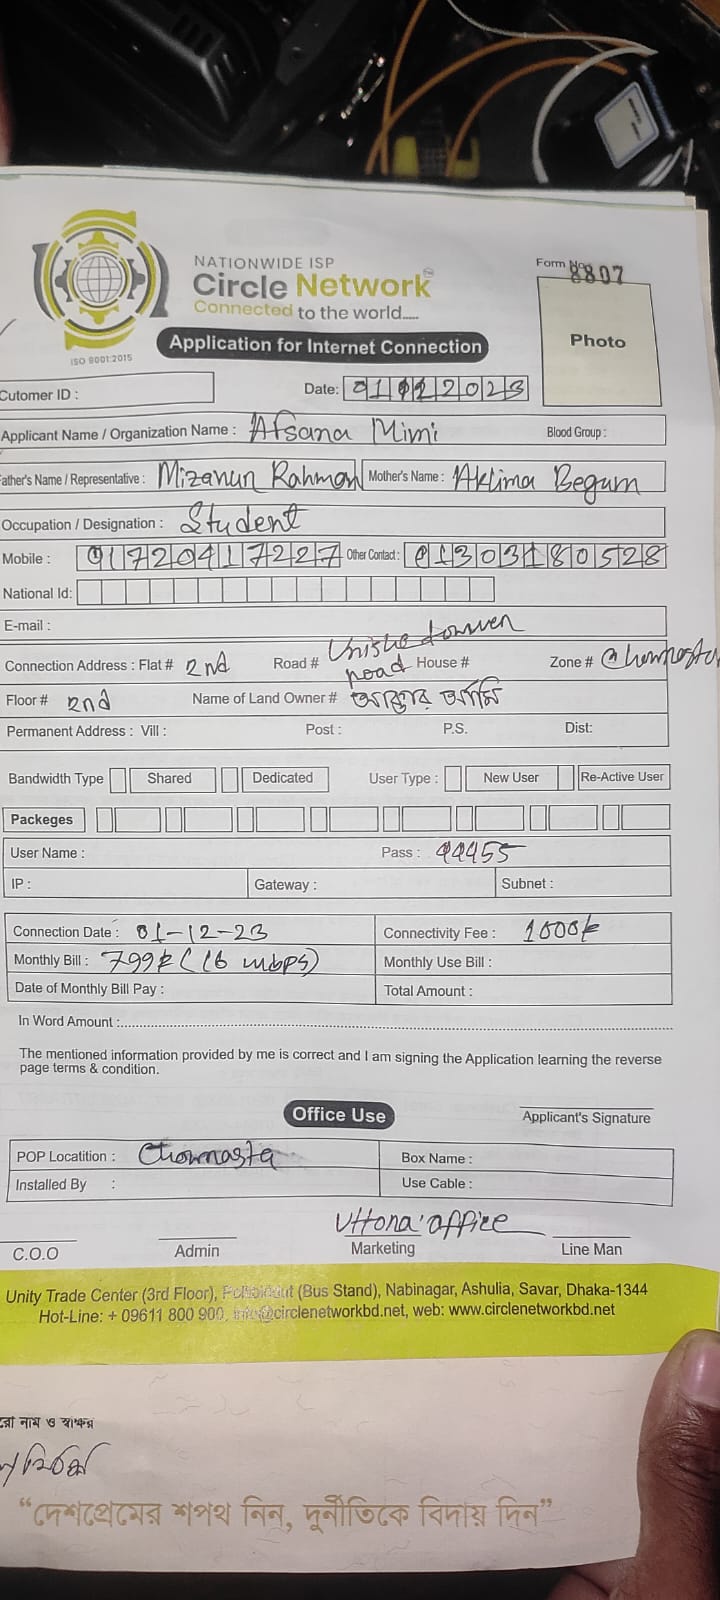 NATIONWIDE ISP
Circle Network™
Connected to the world.....
ISO 9001:2015
Form No. 8807
Photo
Application for Internet Connection
Cutomer ID :
Date: 01122023
Applicant Name / Organization Name : Afsana Mimi Blood Group :
Father's Name / Representative : Mizanur Rahman Mother's Name : Aklima Begum
Occupation / Designation : Student
Mobile : 01720417227 Other Contact : 01303180528
National Id:
E-mail :
Connection Address : Flat # 2nd Road # road House # Zone #
Floor # 2nd Name of Land Owner #
Permanent Address : Vill : Post : P.S. Dist:
Bandwidth Type Shared Dedicated User Type : New User Re-Active User
Packeges
User Name : Pass : 44455
IP : Gateway : Subnet :
Connection Date : 01-12-23 Connectivity Fee : 1000৳
Monthly Bill : 799৳ (16 mbps) Monthly Use Bill :
Date of Monthly Bill Pay : Total Amount :
In Word Amount :
The mentioned information provided by me is correct and I am signing the Application learning the reverse
page terms & condition.
Office Use
Applicant's Signature
POP Locatition : Chowrasta Box Name :
Installed By : Use Cable :
Uttona office
C.O.O Admin Marketing Line Man
Unity Trade Center (3rd Floor), (Bus Stand), Nabinagar, Ashulia, Savar, Dhaka-1344
Hot-Line: + 09611 800 900, info@circlenetworkbd.net, web: www.circlenetworkbd.net
নাম ও স্বাক্ষর
“দেশপ্রেমের শপথ নিন, দুর্নীতিকে বিদায় দিন”